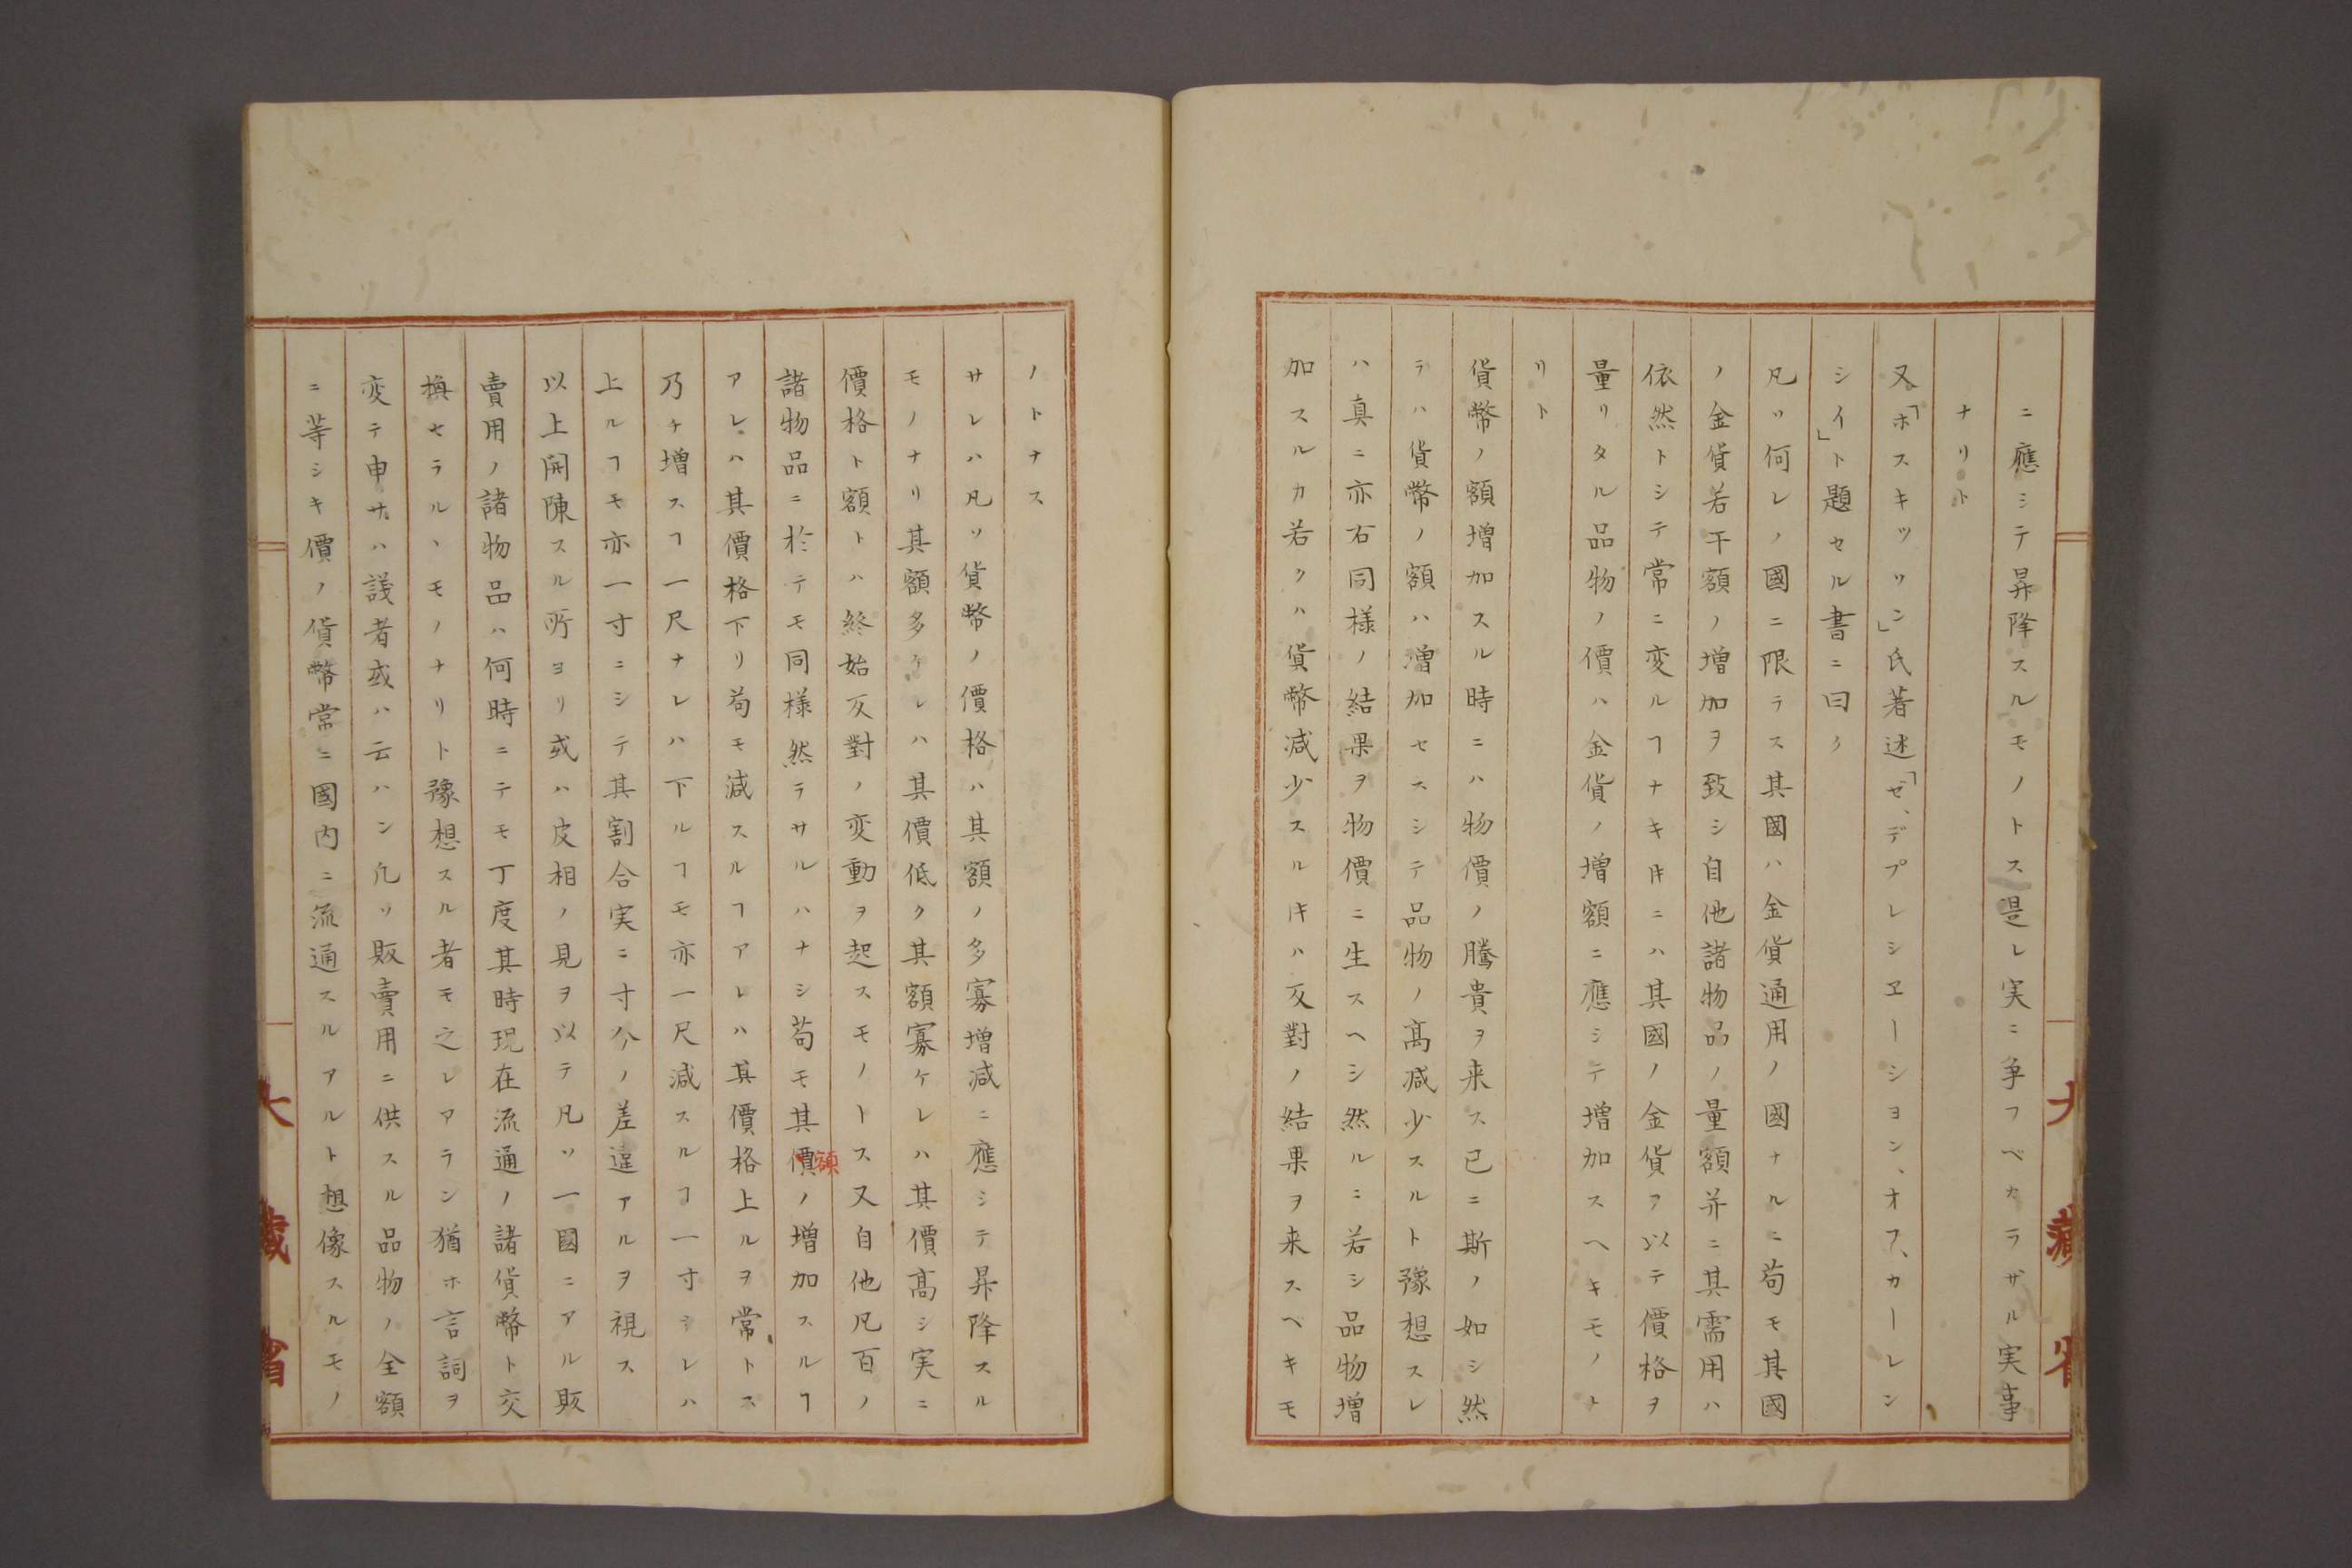 ニ應シテ昇降スルモノトス是レ実ニ争フベカラザル実事
ナリト
又「ホスキッソン」氏著述「ゼ、デプレシヱーション、オフ、カーレン
シイ」ト題セル書ニ曰ク
凡ソ何レノ國ニ限ラス其國ハ金貨通用ノ國ナルニ苟モ其國
ノ金貨若干額ノ増加ヲ致シ自他諸物品ノ量額并ニ其需用ハ
依然トシテ常ニ変ルヿナキ𪜈ニハ其國ノ金貨ヲ以テ價格ヲ
量リタル品物ノ價ハ金貨ノ増額ニ應シテ増加スヘキモノナ
リト
貨幣ノ額増加スル時ニハ物價ノ騰貴ヲ来ス已ニ斯ノ如シ然
ラハ貨幣ノ額ハ増加セスシテ品物ノ高減少スルト豫想スレ
ハ真ニ亦右同様ノ結果ヲ物價ニ生スヘシ然ルニ若シ品物増
加スルカ若クハ貨幣減少スルキハ反對ノ結果ヲ来スヘキモ
ノトナス
サレハ凡ソ貨幣ノ價格ハ其額ノ多寡増減ニ應シテ昇降スル
モノナリ其額多ケレハ其價低ク其額寡ケレハ其價高シ実ニ
價格ト額トハ終始反對ノ変動ヲ起スモノトス又自他凡百ノ
諸物品ニ於テモ同様然ラサルハナシ苟モ其價ノ増加スルヿ
額
アレハ其價格下リ苟モ減スルヿアレハ其價格上ルヲ常トス
乃チ増スヿ一尺ナレハ下ルヿモ亦一尺減スルヿ一寸ナレハ
上ルヿモ亦一寸ニシテ其割合実ニ寸分ノ差違アルヲ視ス
以上開陳スル所ヨリ或ハ皮相ノ見ヲ以テ凡ソ一國ニアル販
賣用ノ諸物品ハ何時ニテモ丁度其時現在流通ノ諸貨幣ト交
換セラルヽモノナリト豫想スル者モ之レアラン猶ホ言詞ヲ
変テ申サハ議者或ハ云ハン凡ソ販賣用ニ供スル品物ノ全額
ニ等シキ價ノ貨幣常ニ國内ニ流通スルアルト想像スルモノ
大藏省
大藏省